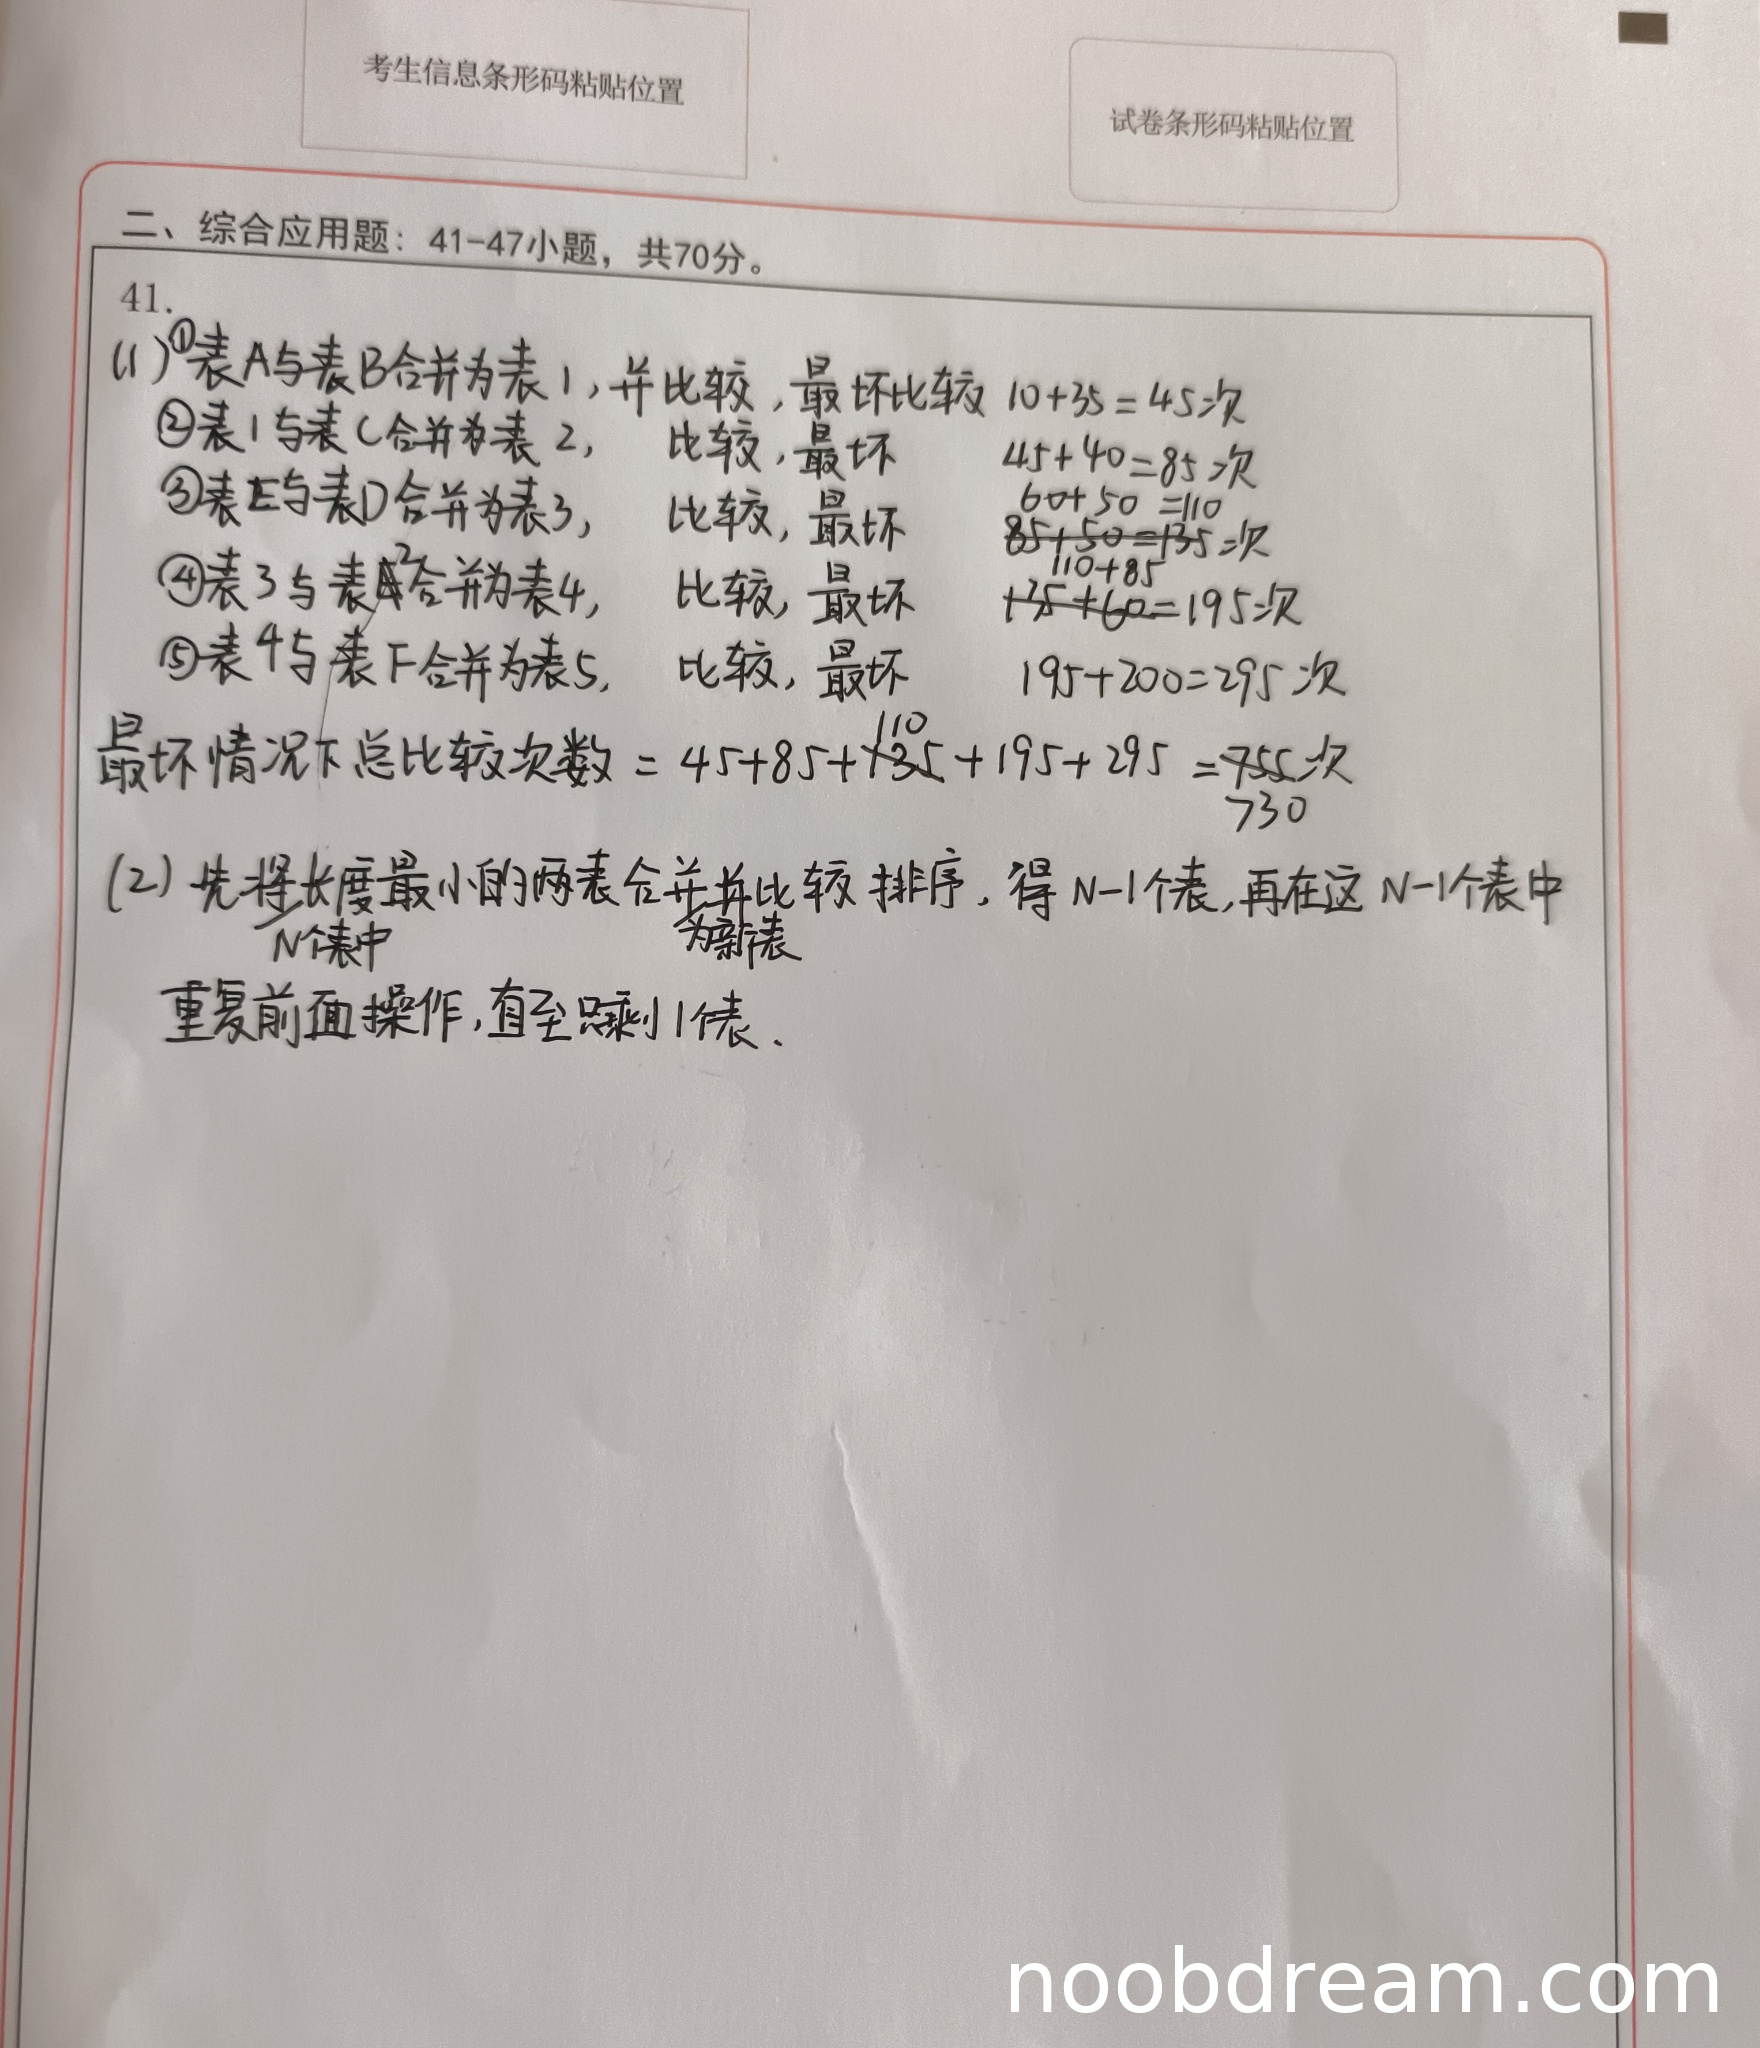 考生信息条形码粘贴位置
试卷条形码粘贴位置
二、综合应用题：41-47小题，共70分。
41.
(1)①表A与表B合并为表1,并比较,最坏比较 10+35=45次
②表1与表C合并为表2, 比较,最坏 45+40=85次
60+50 =110
③表E与表D合并为表3, 比较,最坏 85+50=135次
110+85
④表3与表2合并为表4, 比较,最坏 135+60=195次
⑤表4与表F合并为表5, 比较,最坏 195+200=295次
110
最坏情况下总比较次数 = 45+85+135+195+295 =755次
730
(2)先将长度最小的两表合并并比较排序,得N-1个表,再在这N-1个表中
N个表中 为新表
重复前面操作,直至只剩1个表.
noobdream.com